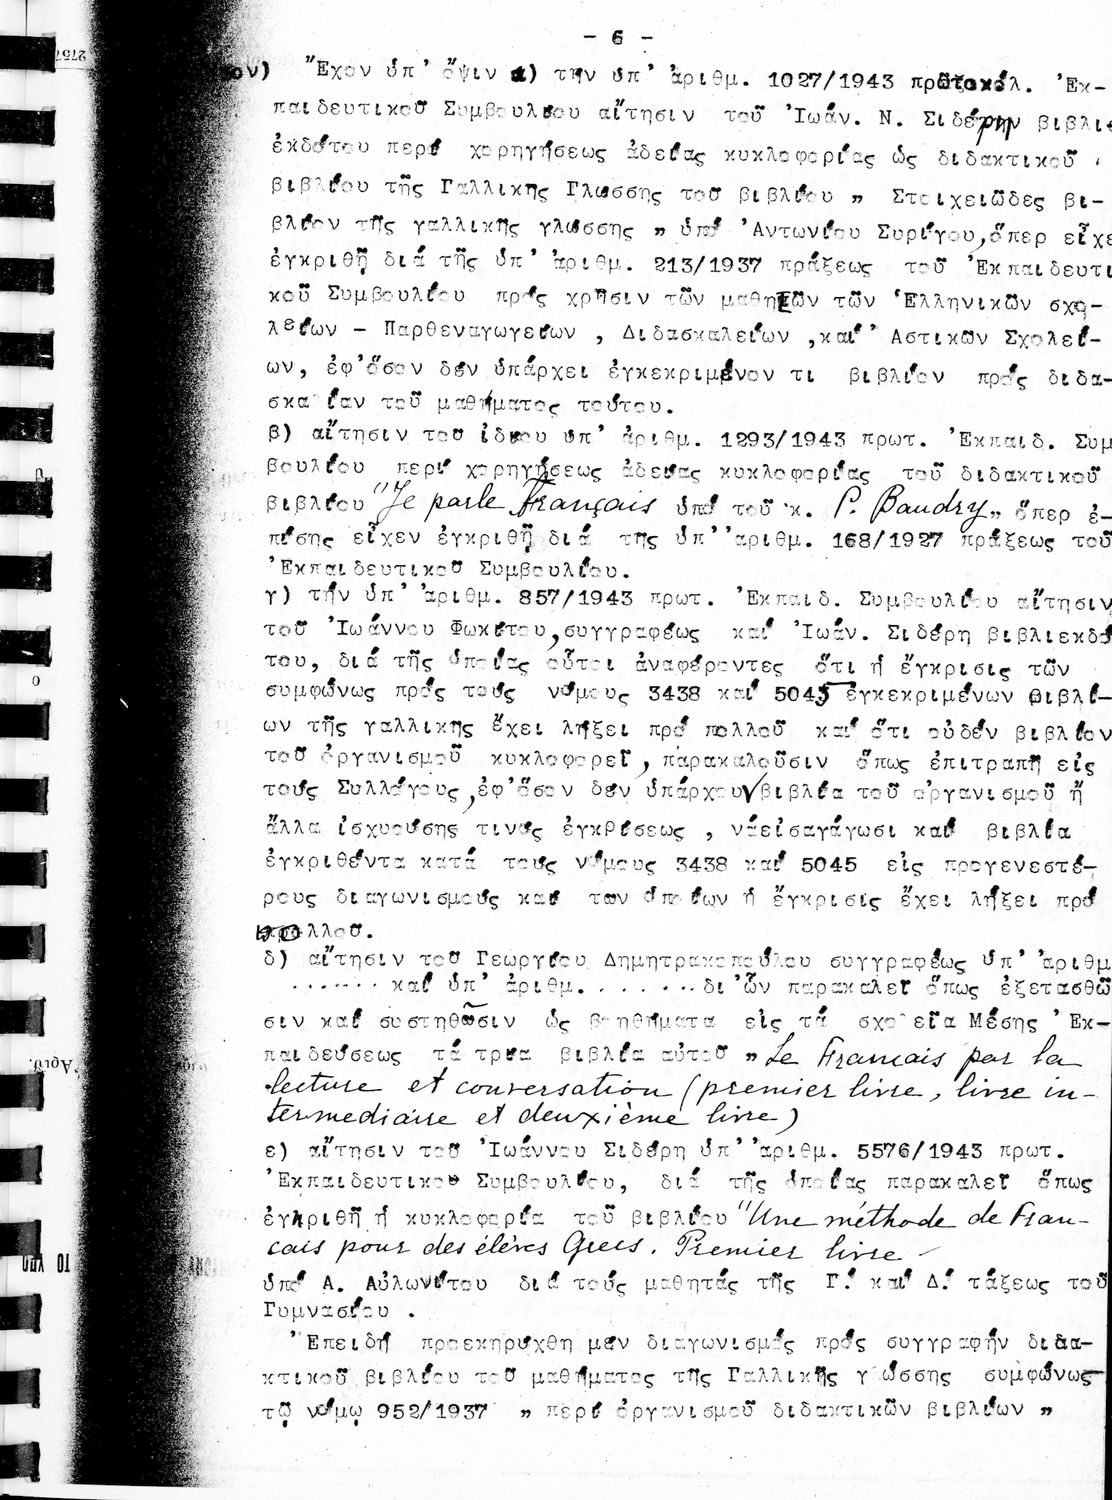 - 6 -
ον) Ἔχον ὑπ' ὄψιν α) τήν ὑπ' ἀριθμ. 1027/1943 πρωτοκόλ. Ἐκ-
παιδευτικοῦ Συμβουλίου αἴτησιν τοῦ Ἰωάν. Ν. Σιδέρη βιβλι
ἐκδότου περί χορηγήσεως ἀδείας κυκλοφορίας ὡς διδακτικοῦ
βιβλίου τῆς Γαλλικῆς Γλώσσης τοῦ βιβλίου " Στοιχειῶδες βι-
βλίον τῆς γαλλικῆς γλώσσης " ὑπό Ἀντωνίου Συρίγου, ὅπερ εἶχε
ἐγκριθῆ διά τῆς ὑπ' ἀριθμ. 213/1937 πράξεως τοῦ Ἐκπαιδευτι
κοῦ Συμβουλίου πρός χρῆσιν τῶν μαθητῶν τῶν Ἑλληνικῶν σχο-
λείων - Παρθεναγωγείων , Διδασκαλείων ,καί Ἀστικῶν Σχολεί-
ων, ἐφ'ὅσον δέν ὑπάρχει ἐγκεκριμένον τι βιβλίον πρός διδα-
σκα ίαν τοῦ μαθήματος τούτου.
β) αἴτησιν τοῦ ἰδίου ὑπ' ἀριθμ. 1293/1943 πρωτ. Ἐκπαιδ. Συμ
βουλίου περί χορηγήσεως ἀδείας κυκλοφορίας τοῦ διδακτικοῦ
βιβλίου "Je parle Français ὑπό τοῦ κ. P. Baudry" ὅπερ ἐ-
πίσης εἶχεν ἐγκριθῆ διά τῆς ὑπ' ἀριθμ. 168/1927 πράξεως τοῦ
Ἐκπαιδευτικοῦ Συμβουλίου.
γ) τήν ὑπ' ἀριθμ. 857/1943 πρωτ. Ἐκπαιδ. Συμβουλίου αἴτησιν
τοῦ Ἰωάννου Φωκίτου, συγγραφέως καί Ἰωάν. Σιδέρη βιβλιεκδό
του, διά τῆς ὁποίας οὗτοι ἀναφέροντες ὅτι ἡ ἔγκρισις τῶν
συμφώνως πρός τούς νόμους 3438 καί 5045 ἐγκεκριμένων βιβλί-
ων τῆς γαλλικῆς ἔχει λήξει πρό πολλοῦ καί ὅτι οὐδέν βιβλίον
τοῦ ὀργανισμοῦ κυκλοφορεῖ, παρακαλοῦσιν ὅπως ἐπιτραπῆ εἰς
τούς Συλλόγους, ἐφ'ὅσον δέν ὑπάρχουν βιβλία τοῦ ὀργανισμοῦ ἤ
ἄλλα ἰσχυούσης τινός ἐγκρίσεως , νάεἰσαγάγωσι καί βιβλία
ἐγκριθέντα κατά τούς νόμους 3438 καί 5045 εἰς προγενεστέ-
ρους διαγωνισμούς καί τῶν ὁποίων ἡ ἔγκρισις ἔχει λήξει πρό
πολλοῦ.
δ) αἴτησιν τοῦ Γεωργίου Δημητρακοπούλου συγγραφέως ὑπ' ἀριθμ
....... καί ὑπ' ἀριθμ. ....... δι'ὧν παρακαλεῖ ὅπως ἐξετασθῶ
σιν καί συστηθῶσιν ὡς βοηθήματα εἰς τά σχο εῖα Μέσης Ἐκ-
παιδεύσεως τά τρία βιβλία αὐτοῦ " Le Francais par la
lecture et conversation (premier livre, livre in-
termediaire et deuxième livre)
ε) αἴτησιν τοῦ Ἰωάννου Σιδέρη ὑπ' ἀριθμ. 5576/1943 πρωτ.
Ἐκπαιδευτικοῦ Συμβουλίου, διά τῆς ὁποίας παρακαλεῖ ὅπως
ἐγκριθῆ ἡ κυκλοφορία τοῦ βιβλίου "Une méthode de Fran-
cais pour des élèves Grecs. Premier livre -
ὑπό Α. Αὐλωνίτου διά τούς μαθητάς τῆς Γ. καί Δ. τάξεως τοῦ
Γυμνασίου .
Ἐπειδή προεκηρύχθη μέν διαγωνισμός πρός συγγραφήν διδα-
κτικοῦ βιβλίου τοῦ μαθήματος τῆς Γαλλικῆς γ ώσσης συμφώνως
τῷ νόμῳ 952/1937 " περί ὀργανισμοῦ διδακτικῶν βιβλίων "